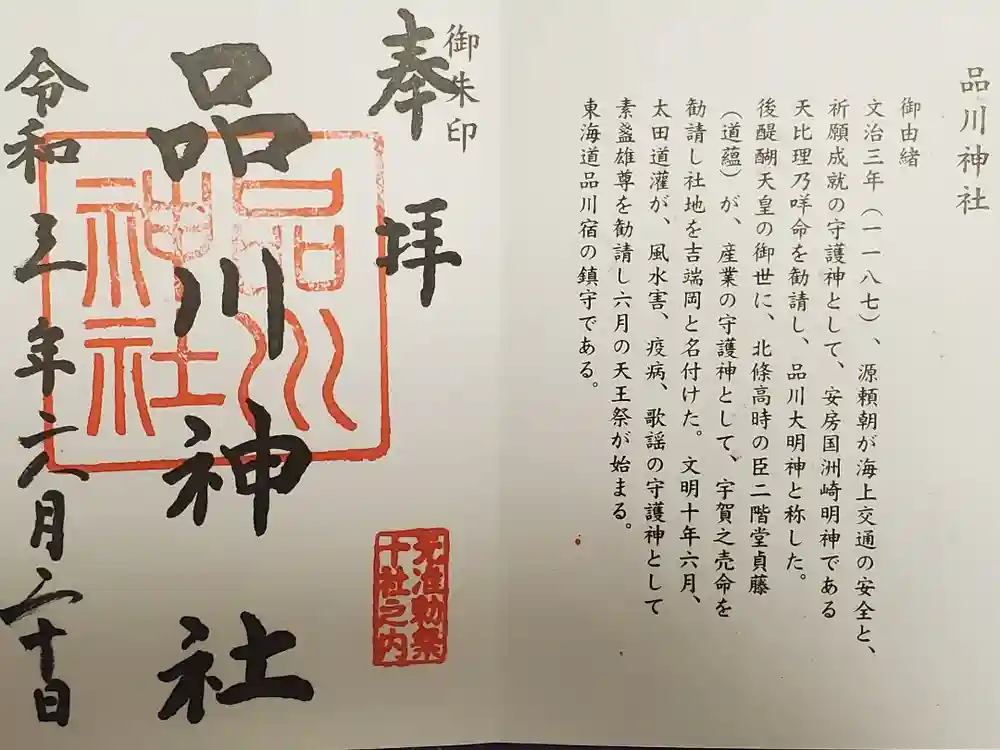 品川神社
御由緒
文治三年（一一八七）、源頼朝が海上交通の安全と、
祈願成就の守護神として、安房国洲崎明神である
天比理乃咩命を勧請し、品川大明神と称した。
後醍醐天皇の御世に、北條高時の臣二階堂貞藤
（道蘊）が、産業の守護神として、宇賀之売命を
勧請し社地を吉端岡と名付けた。文明十年六月、
太田道灌が、風水害、疫病、歌謡の守護神として
素盞雄尊を勧請し六月の天王祭が始まる。
東海道品川宿の鎮守である。
御朱印
奉拝
元准勅祭
十社之内
品川神社
品川
神社
令和三年六月二十日